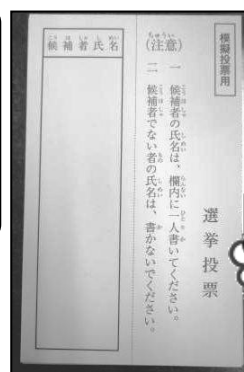 模擬投票用
選挙投票
(注意)
一 候補者の氏名は、欄内に一人書いてください。
二 候補者でない者の氏名は、書かないでください。
候補者氏名